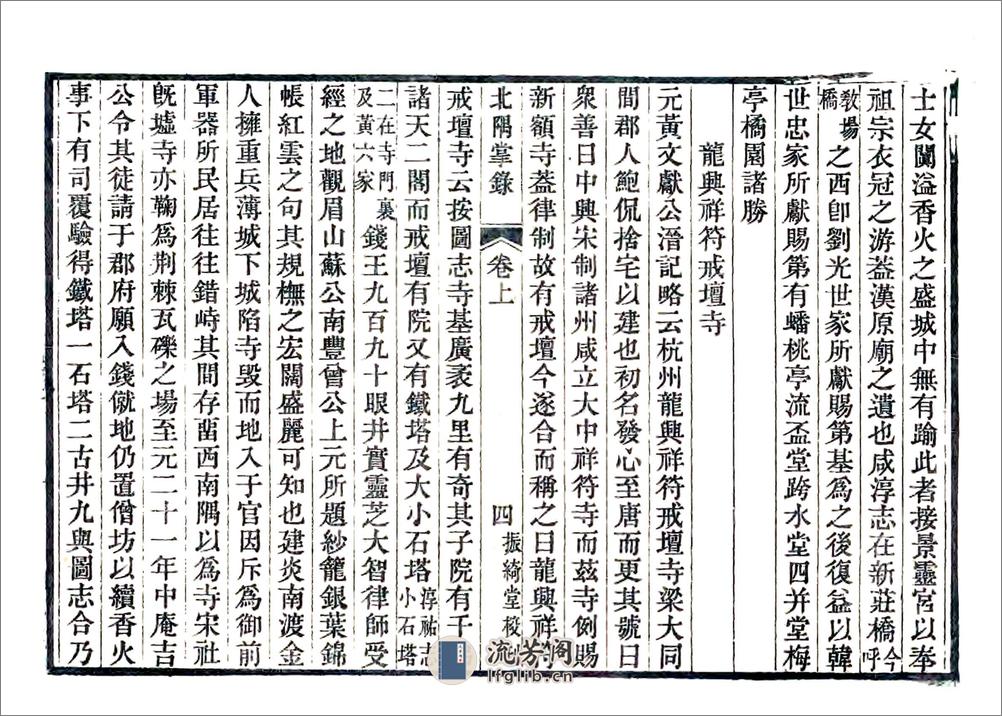 士女闐溢香火之盛城中無有踰此者接景靈宮以奉
祖宗衣冠之游葢漢原廟之遺也咸淳志在新莊橋今呼
教場橋之西卽劉光世家所獻賜第基爲之後復益以韓
世忠家所獻賜第有蟠桃亭流盃堂跨水堂四并堂梅
亭橋園諸勝
龍興祥符戒壇寺
元黃文獻公溍記略云杭州龍興祥符戒壇寺梁大同
間郡人鮑侃捨宅以建也初名發心至唐而更其號曰
衆善曰中興宋制諸州咸立大中祥符寺而茲寺例賜
新額寺葢律制故有戒壇今遂合而稱之曰龍興祥
北隅掌錄 卷上 四 振綺堂校
戒壇寺云按圖志寺基廣袤九里有奇其子院有千
諸天二閣而戒壇有院又有鐵塔及大小石塔淳祐志小石塔
二在寺門裏及黃六家錢王九百九十眼井實靈芝大智律師受
經之地觀眉山蘇公南豐曾公上元所題紗籠銀葉錦
帳紅雲之句其規橅之宏闊盛麗可知也建炎南渡金
人擁重兵薄城下城陷寺毀而地入于官因斥爲御前
軍器所民居往往錯峙其間存畱西南隅以爲寺宋社
旣墟寺亦鞠爲荆棘瓦礫之場至元二十一年中庵吉
公令其徒請于郡府願入錢僦地仍置僧坊以續香火
事下有司覆驗得鐵塔一石塔二古井九與圖志合乃
流芳阁
lfglib.cn